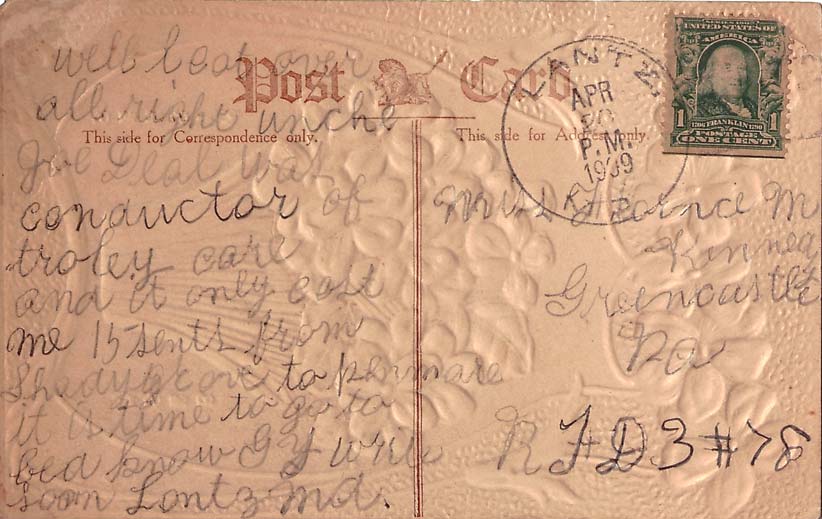 Post Card
This side for Correspondence only.
This side for Address only.
LANTZ
APR
20
P.M.
1909
SERIES 1902
UNITED STATES OF
AMERICA
1 1
1706 FRANKLIN 1790
POSTAGE
ONE CENT
well I got over
all right unche
Joe Deal was
conductor of
troley care
and it only cost
me 15 sents from
Shadygrove to penmare
it is time to go to
bed know G Y write
soon Lantz Md.
Miss Florence M
Kinney
Greencastle
Pa
R F D 3 # 78